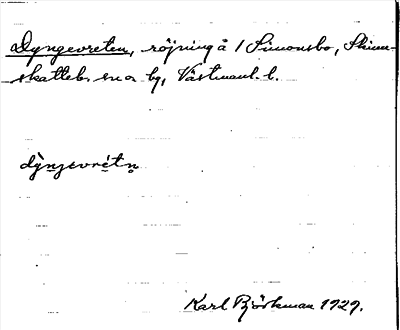 Dyngevreten, röjning å 1 Simonsbo, Skinn-
skatteb. sn o by, Västmanl. l.
dyŋjevretn̥
Karl Björkman 1929.